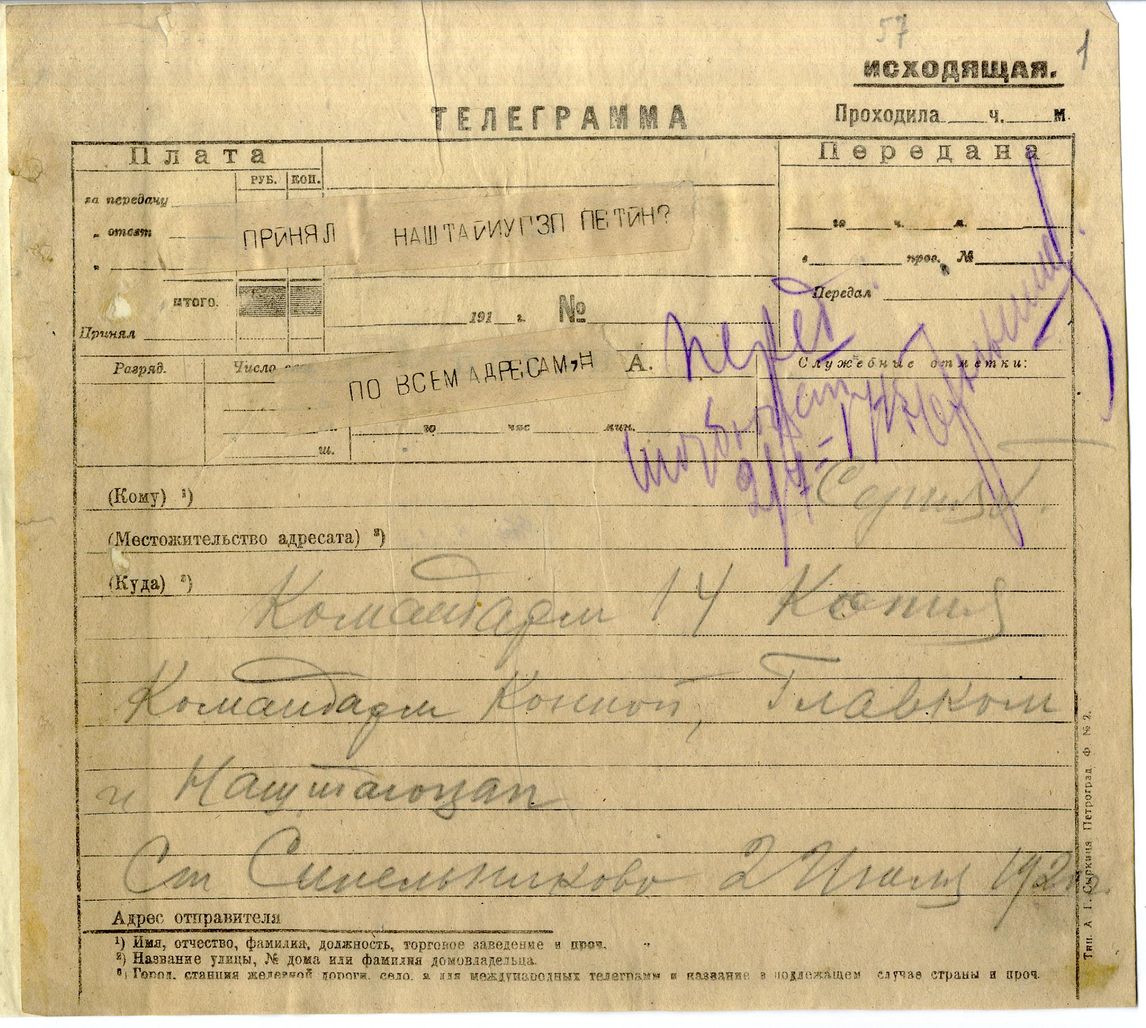 57
1
ИСХОДЯЩАЯ.
ТЕЛЕГРАММА
Проходила ч. м
Плата
Передана
РУБ. КОП.
за передачу
„ ответ
„
ПРИНЯЛ НАШТАЙИУГЗП ПЕТИН?
го ч. м.
в пров. №
Передал
ИТОГО.
191 г. №
Принял
Разряд. Число
ПО ВСЕМ АДРЕСАМ,Н А.
Служебные отметки:
го час мин.
ш.
(Кому) ¹)
(Местожительство адресата) ²)
(Куда) ³)
Командарм 14 Копия
Командарм Конной, Главком
и Наштаюзап
Ст Синельниково 2 Июля 192 г.
Адрес отправителя
¹) Имя, отчество, фамилия, должность, торговое заведение и проч.
²) Название улицы, № дома или фамилия домовладельца.
³) Город, станция железной дороги, село, а для международных телеграмм и название в подлежащем случае страны и проч.
Тип. А. Г. Сыркина Петроград Ф № 2.